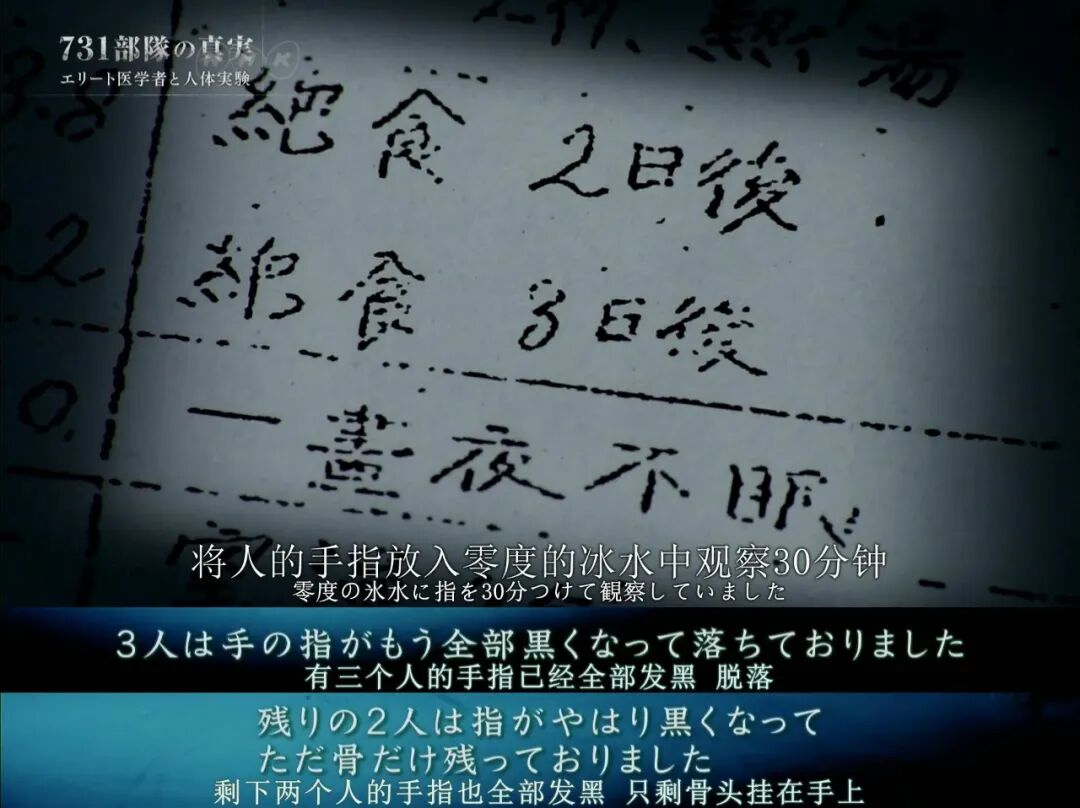 731部隊の真実
NHK
エリート医学者と人体実験
熱湯
絶食 2日後
絶食 3日後
一晝夜不眠
将人的手指放入零度的冰水中观察30分钟
零度の氷水に指を30分つけて観察していました
3人は手の指がもう全部黒くなって落ちておりました
有三个人的手指已经全部发黑 脱落
残りの2人は指がやはり黒くなって
ただ骨だけ残っておりました
剩下两个人的手指也全部发黑 只剩骨头挂在手上